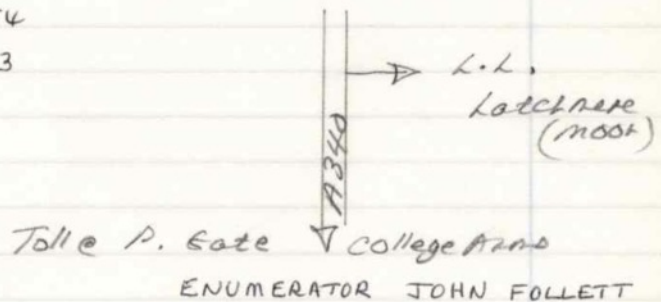 4
3
L.L.
Latchmere
(Moor)
A340
Toll @ P. Gate College Arms
ENUMERATOR JOHN FOLLETT